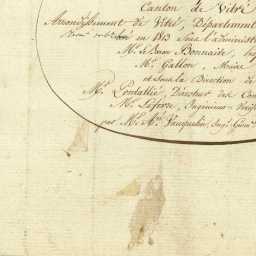 Canton de Vitré
Arrondissement de Vitré, Département
en 1813 Sous l'administra
Mr. le Baron Bonnaire,
Mr. Gallon, Maire
et sous la Direction de
Mr. Directeur des Con
Mr. Lefevre, Ingénieur
par Mr. Mrs. Vauquelin,